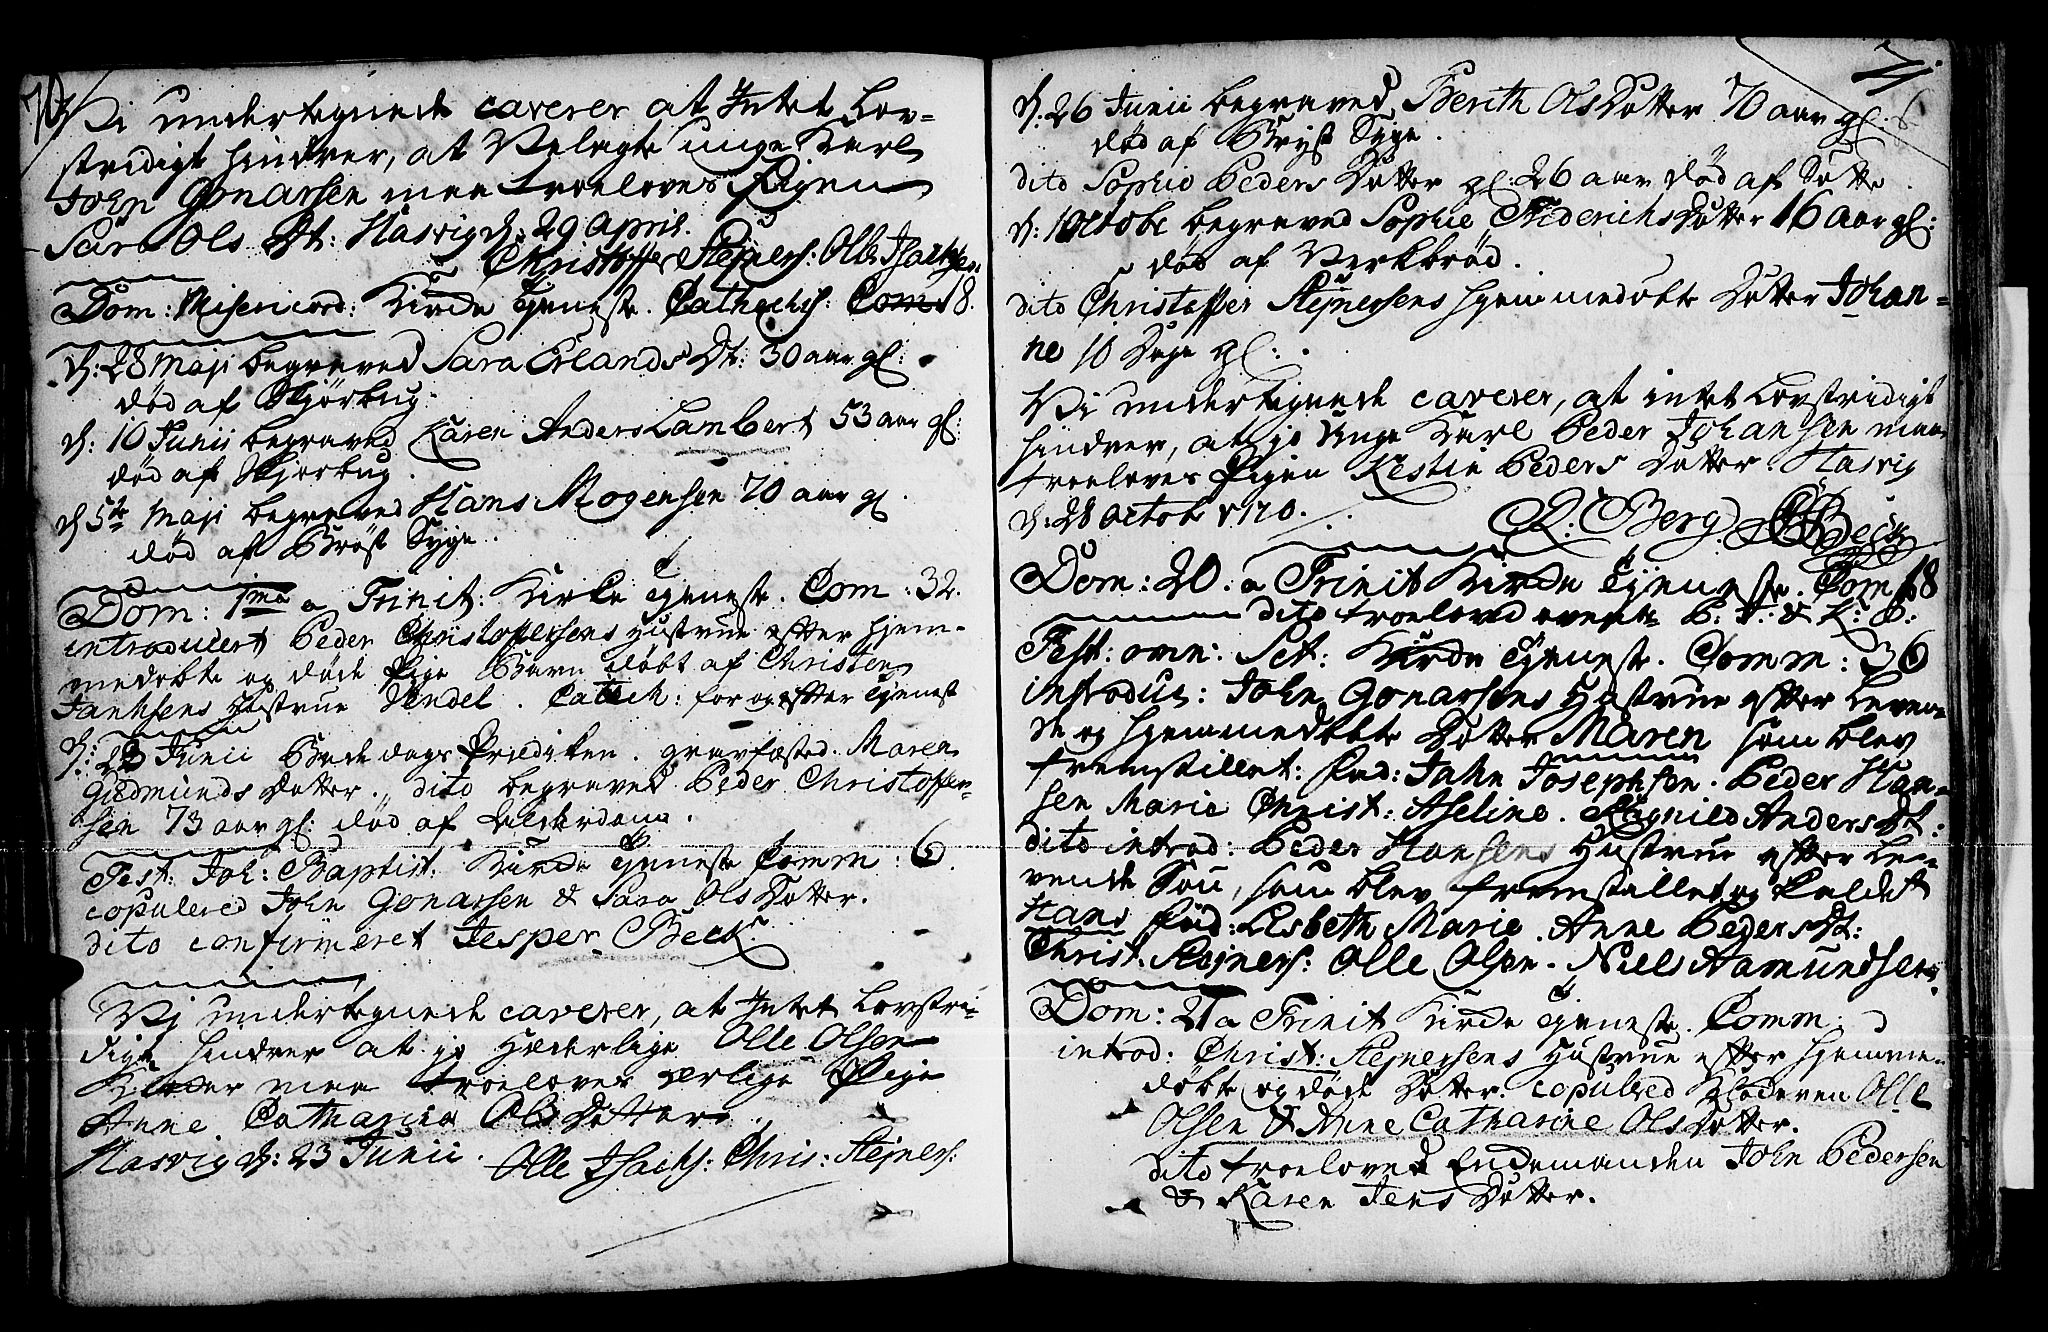 70
Vi undertegnede caverer at Intet Lov-
stridigt hindrer, at Velagte unge Karl
John Gonarsen maa troeloves Pigen
Sara Ols Dt: Hasvig d: 29 April.
Christoffer Stejners: Olle Isachsen
Dom: Misericord: Kirke Tjeneste. Cathechs: Com 18.
d: 28 Maji begraved Sara Erlands Dt: 30 aar gl:
død af Skjørbug.
d: 10 Junii begraved Karen Anders Lambert 53 aar gl:
død af Skjørbug.
d 5te Maji begraved Hans Mogensen 70 aar gl.
død af Brøst Syge.
Dom: 1ma a Trinit: Kirke Tjeneste. Com: 32.
introducert Peder Christoffersens Hustrue efter hjem-
medøbte og døde Pige Barn døbt af Christen
Janhsens Hustrue Vendel. Catech: for og efter Tjenest
d: 23 Junii Bededags Prædiken. gravfæsted Maren
Gudmunds Dotter. dito begraved Peder Christoffer-
sen 73 aar gl: død af Alderdom.
Fest: Joh: Baptist. Kirke Tjeneste Comm: 6.
copulered John Gonarsen & Sara Ols Dotter.
dito confirmeret Jesper Beck.
Vj undertegnede caverer, at Intet Lovstri-
digt hindrer at jo Hæderlige Olle Olsen
Klocker maa troeloves ærlige Pige
Anne Catharina Ols Dotter.
Hasvig d: 23 Junii. Olle Isachs: Chris: Stejners:
71.
d: 26 Junii begraved Berith Ols Dotter 70 aar gl.
død af Bryst Syge.
dito Sophie Peders Dotter gl: 26 aar død af Sotte.
d: 1 Octobr begraved Sophie Friderichs Dotter 16 aar gl:
død af Verkbrød.
dito Christoffer Stejnersens hjemmedøbte Dotter Johan-
ne 10 Dage gl:.
Vi undertegnede caverer, at intet Lovstridigt
hindrer, at jo Unge Karl Peder Johansen maa
troeloves Pigen Kestin Peders Dotter Hasvig
d: 28 Octobr
Q. Berg Beck
Dom: 20. a Trinit Kirke Tjeneste. Com 18
dito troeloved P. J: & K: P:
Fest: omn: Sct: Kirke Tjeneste. Comm: 36
introduc: John Gonarsens Hustrue efter Leven-
de og hjemmedøbte Dotter Maren som blev
fremstillet: Fad: Jahn Josephsen. Peder Han-
sen Marie Christ: Aseline. Ragnild Anders Dt:
dito introd: Peder Hansens Hustrue efter Le-
vende Søn, som blev fremstillet og kaldet
Hans Fad: Lisbeth Marie. Anne Peders Dt:
Christ. Stejners: Olle Olsen. Niels Aamundsen.
Dom: 21 a Trinit Kirke Tjeneste. Comm:
introd: Christ: Stejnersens Hustrue efter hjemme-
døbte og døde Dotter. copulered Klockeren Olle
Olsen & Anne Catharine Ols Dotter.
dito troeloved Enkemanden John Pedersen
& Karen Jens Dotter.